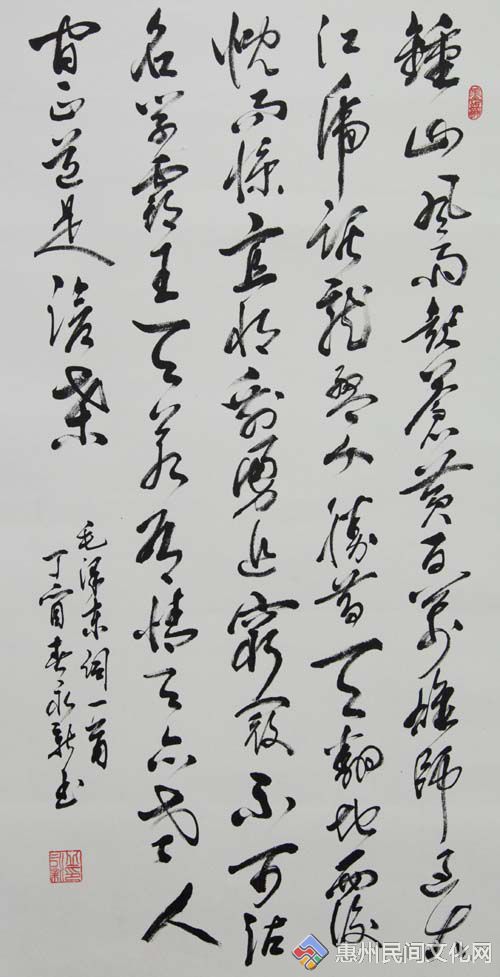 鍾山风雨起蒼黄百萬雄師过大
江虎踞龍盤今勝昔天翻地覆
慨而慷宜将剩勇追窮寇不可沽
名学霸王天若有情天亦老人
间正道是滄桑
毛澤東詞一首
丁酉春永新书
惠州民间文化网